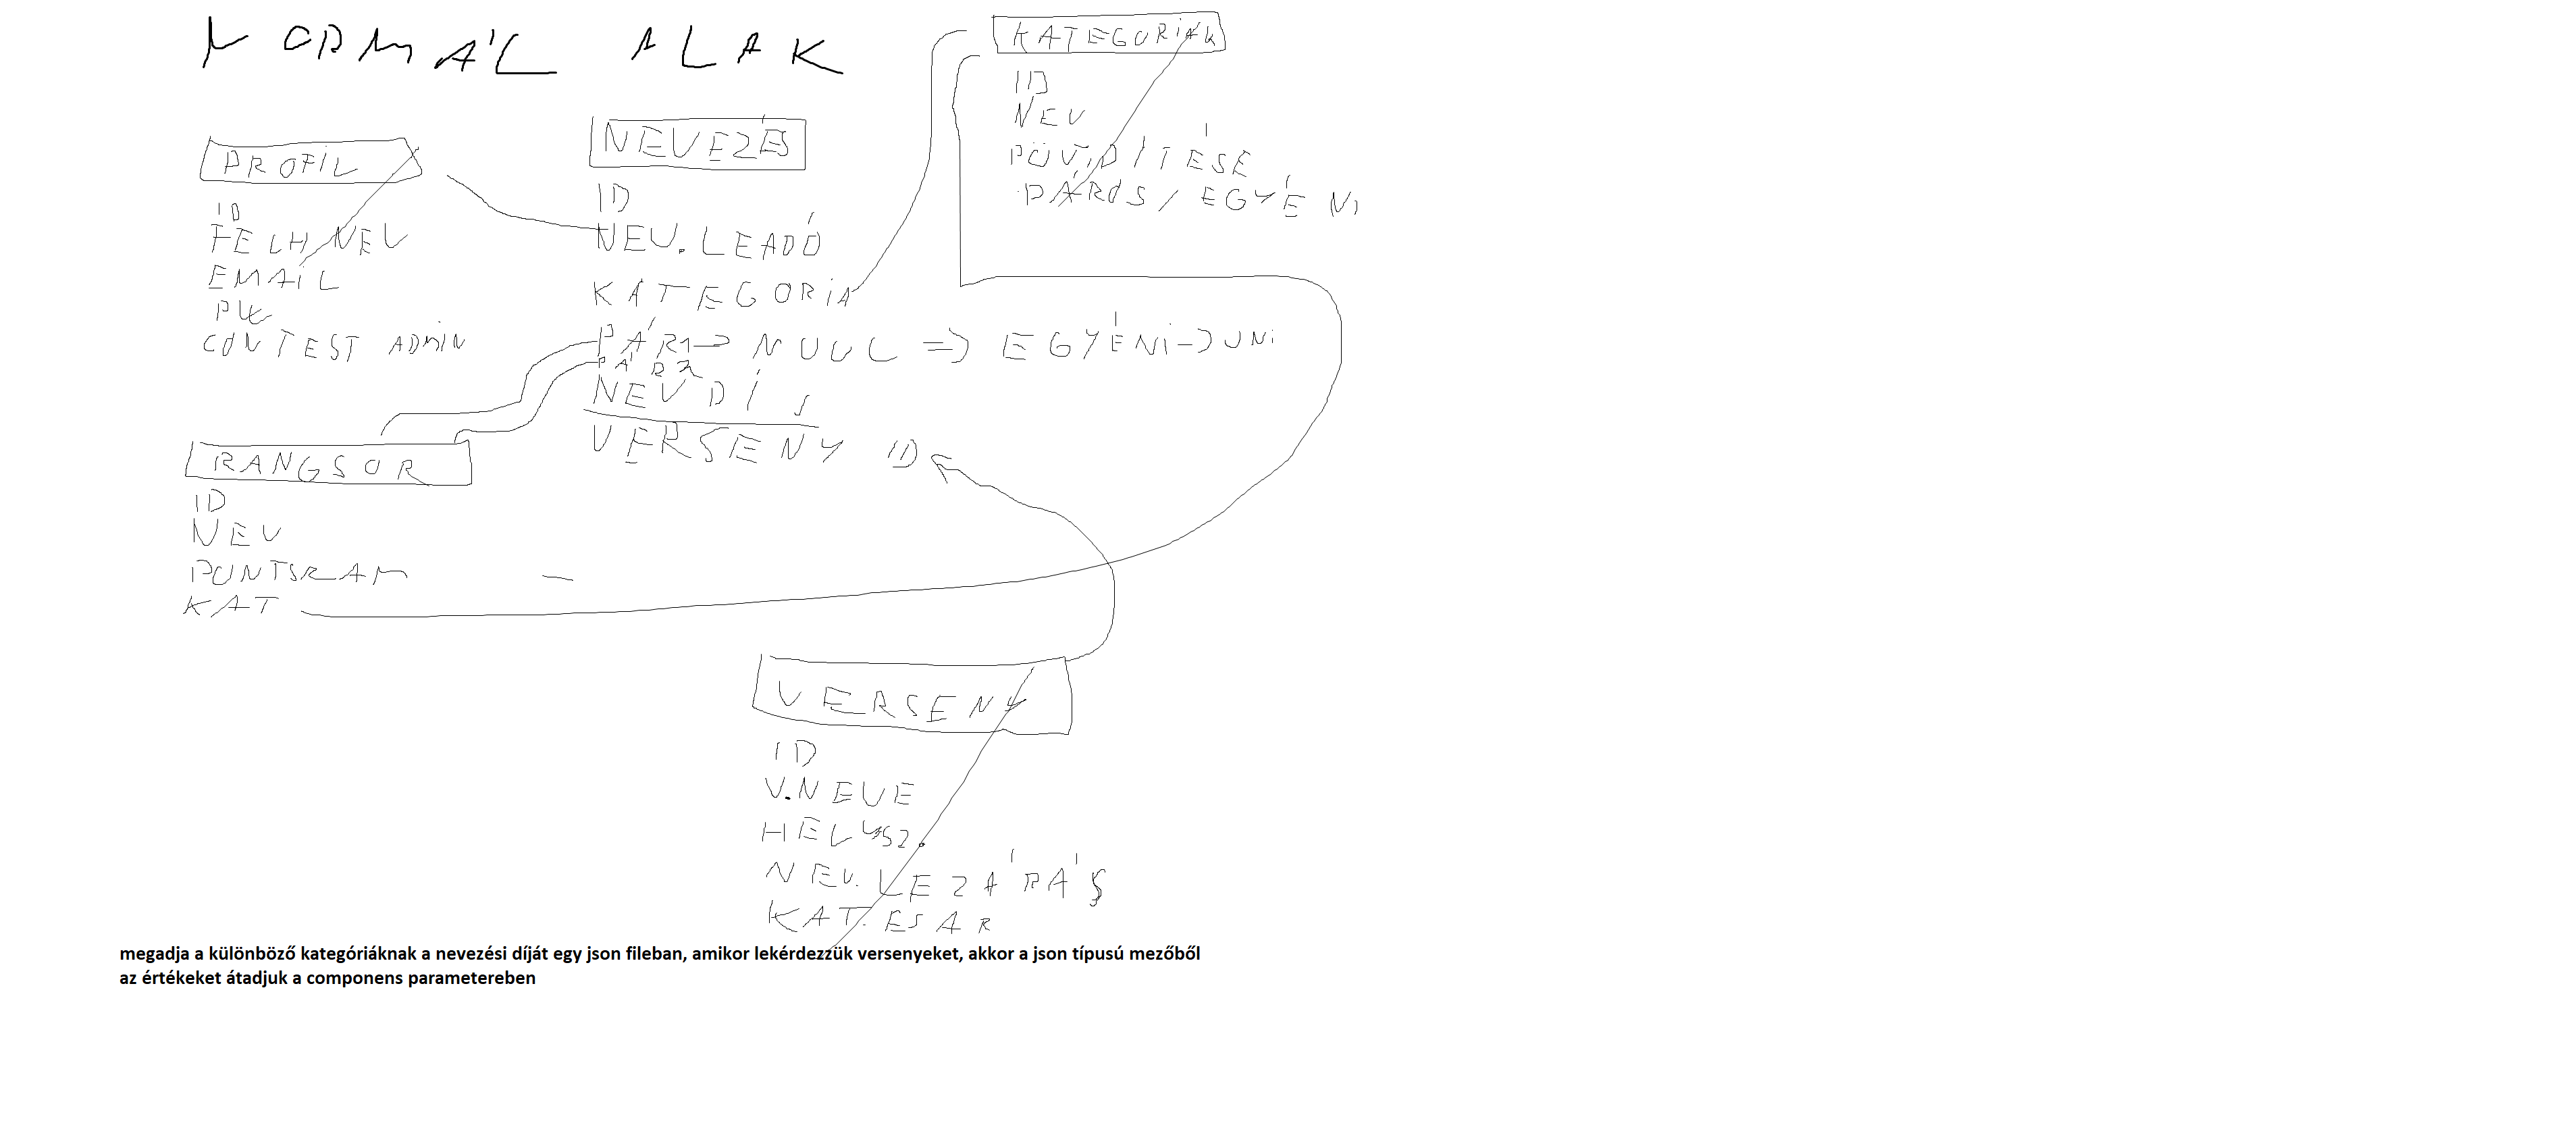 NORMÁL ALAK
PROFIL
ID
FELH NEV
EMAIL
PW
CONTEST ADMIN
NEVEZÉS
ID
NEV. LEADÓ
KATEGORIA
PÁR1 -> NULL => EGYÉNI -> UNI
PÁR2
NEVDÍJ
VERSENY ID
KATEGORIÁK
ID
NEV
RÖVIDÍTÉSE
PÁROS / EGYÉNI
RANGSOR
ID
NEV
PONTSZAM -
KAT
VERSENY
ID
V.NEVE
HELYSZ.
NEV. LEZÁRÁS
KAT. ES AR
megadja a különböző kategóriáknak a nevezési díját egy json fileban, amikor lekérdezzük versenyeket, akkor a json típusú mezőből
az értékeket átadjuk a componens parametereben